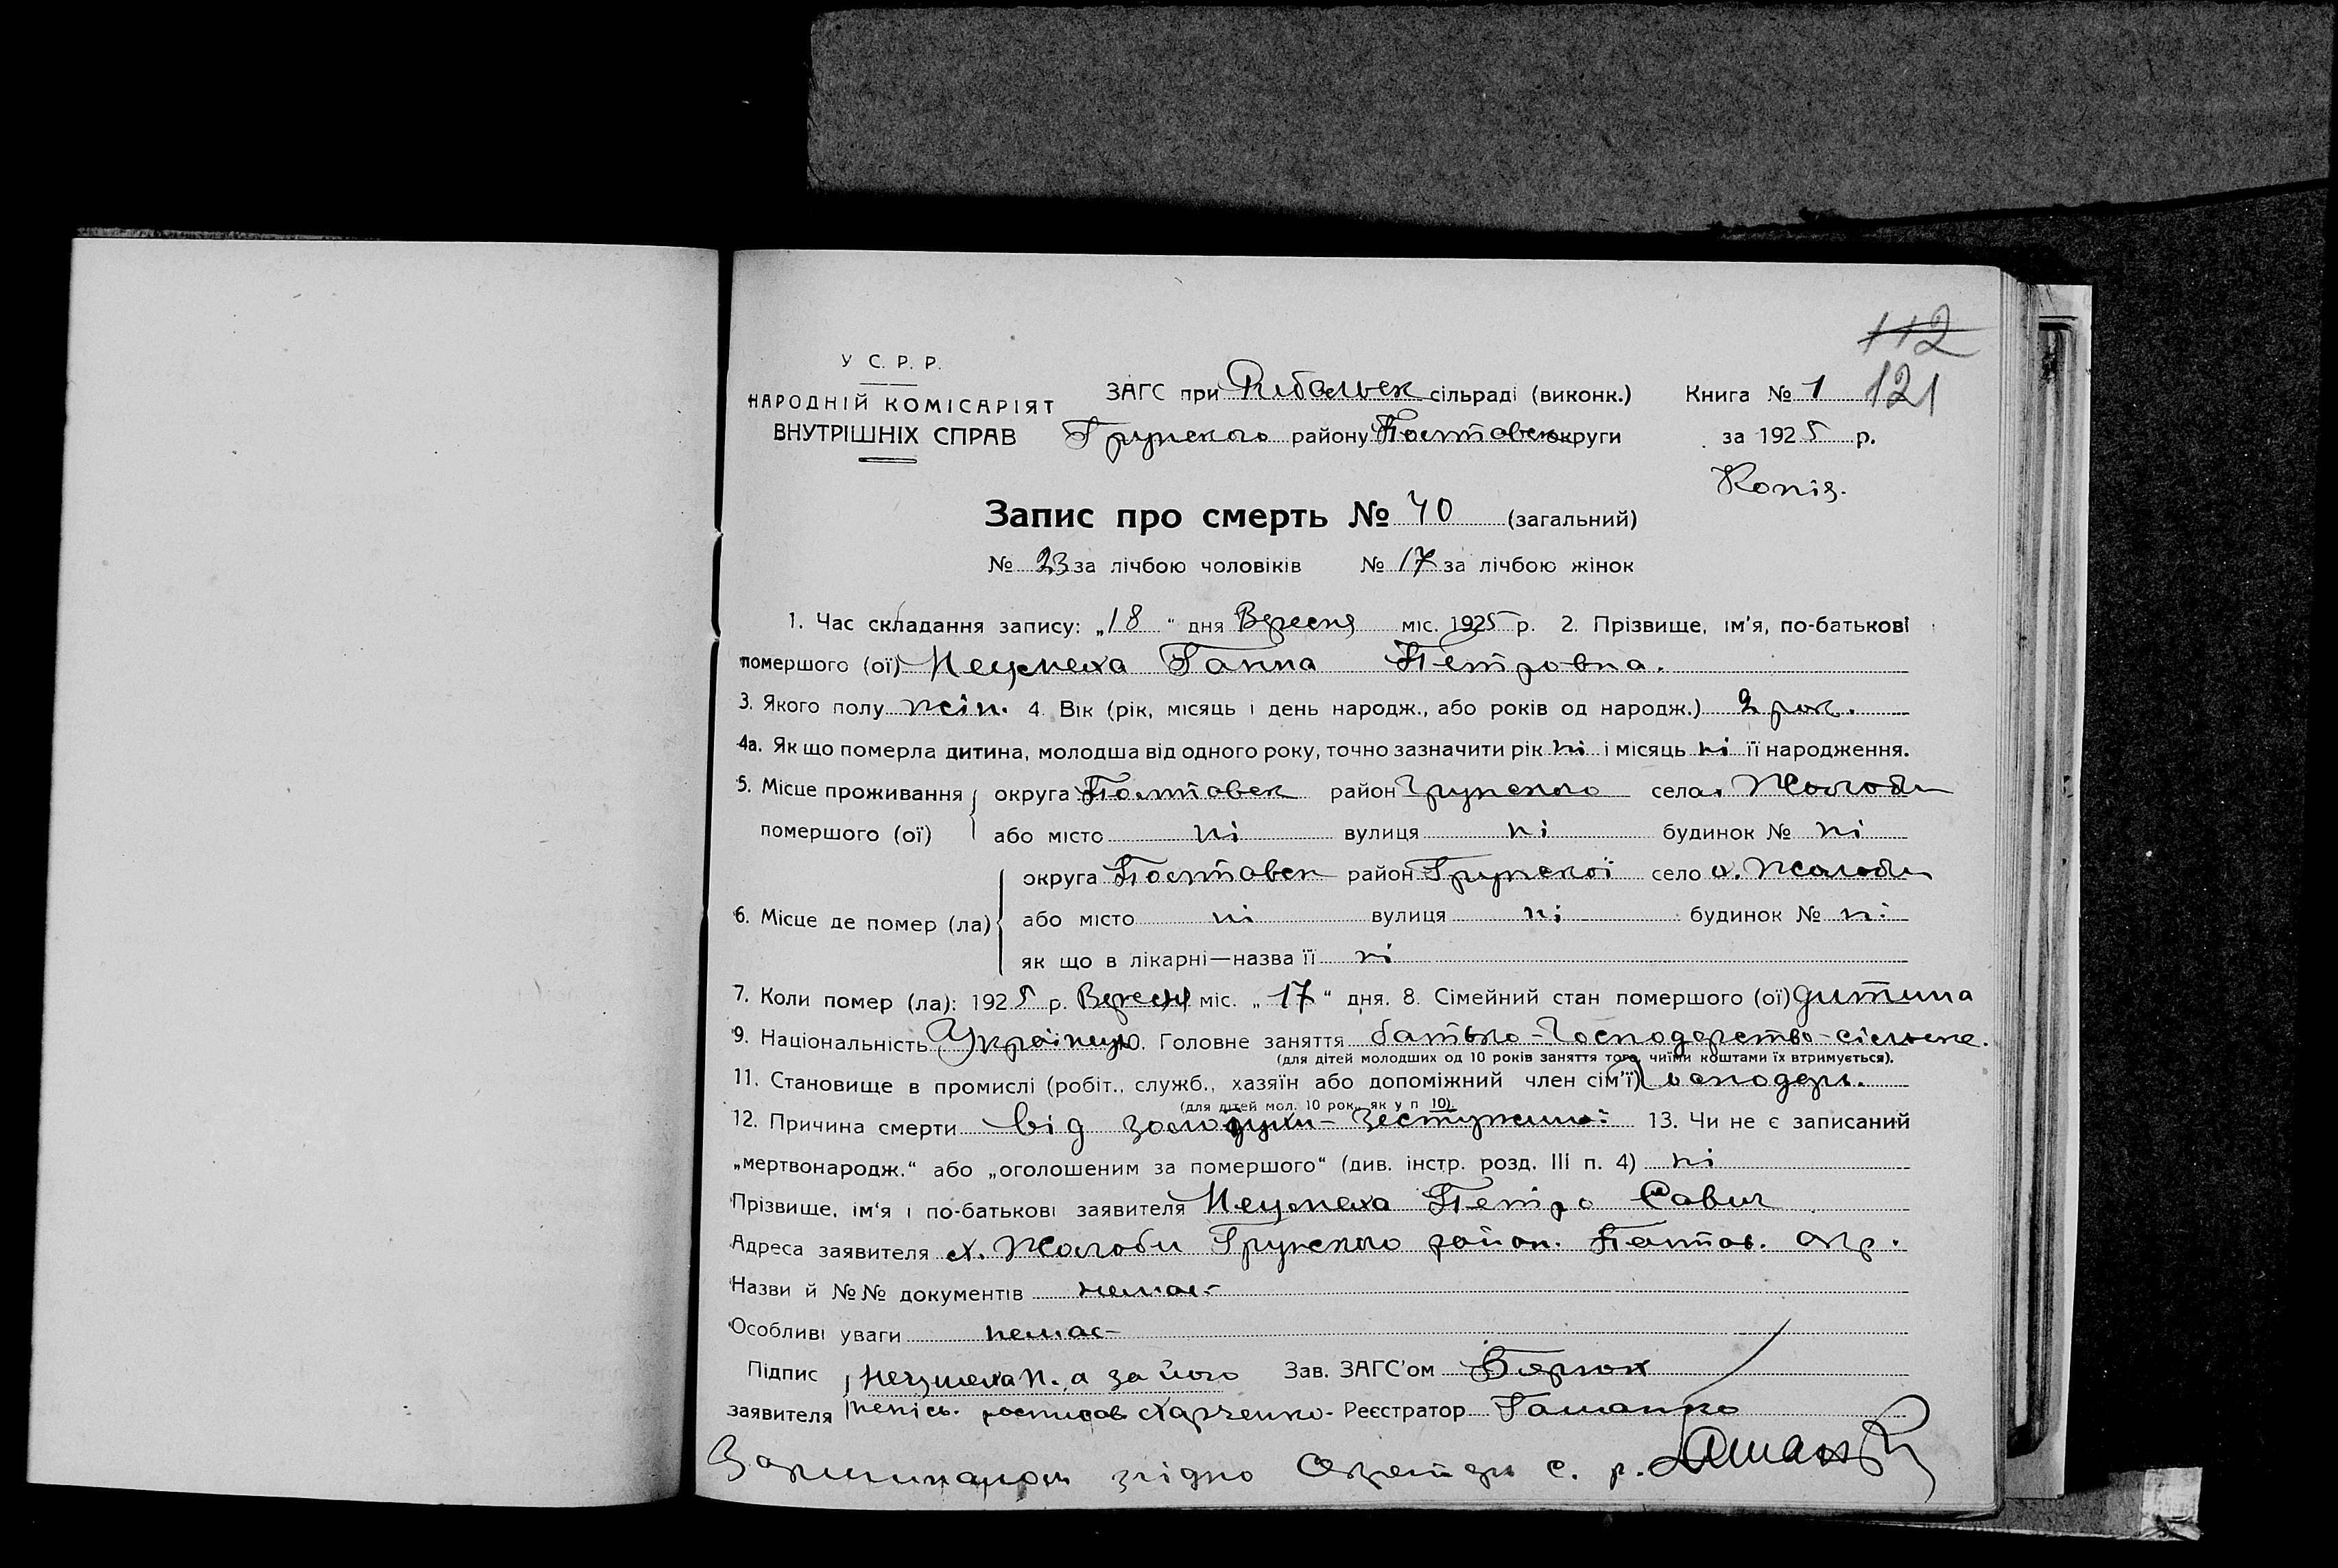 112
121
У С. Р. Р.
НАРОДНІЙ КОМІСАРІЯТ
ВНУТРІШНІХ СПРАВ
ЗАГС при Рибальск сільраді (виконк.) Книга № 1
Грунского району Полтавск округи за 1925 р.
Копія.
Запис про смерть № 40 (загальний)
№ 23 за лічбою чоловіків № 17 за лічбою жінок
1. Час складання запису: „18“ дня Вересня міс. 1925 р. 2. Прізвище, ім'я, по-батькові
помершого (ої) Неумеха Ганна Петровна.
3. Якого полу жін. 4. Вік (рік, місяць і день народж., або років од народж.) 2 рок.
4а. Як що померла дитина, молодша від одного року, точно зазначити рік ні і місяць ні її народження.
5. Місце проживання помершого (ої) округа Полтавск район Грунского села х. Жолоби
або місто ні вулиця ні будинок № ні
6. Місце де помер (ла) округа Полтавск район Грунской село х. Жолоби
або місто ні вулиця ні будинок № ні
як що в лікарні—назва її ні
7. Коли помер (ла): 1925 р. Вересня міс. „17“ дня. 8. Сімейний стан помершого (ої) дитина
9. Національність 10. Головне заняття батько - Господарство - сільське.
(для дітей молодших од 10 років заняття того, чиїми коштами їх втримується).
11. Становище в промислі (робіт., служб., хазяїн або допоміжний член сім'ї) господарь.
(для дітей мол. 10 рок., як у п 10).
12. Причина смерти від золотухи - 13. Чи не є записаний
„мертвонародж.“ або „оголошеним за помершого“ (див. інстр. розд. III п. 4) ні
Прізвище, ім'я і по-батькові заявителя Неумеха Петро Савич
Адреса заявителя х. Жолоби Грунского район. Полтав. окр.
Назви й №№ документів немає
Особливі уваги немає
Підпис заявителя Неумеха п. а за його Зав. ЗАГС'ом
непісь. росписав Харченко - Реєстратор Гашанко
згідно с. р.